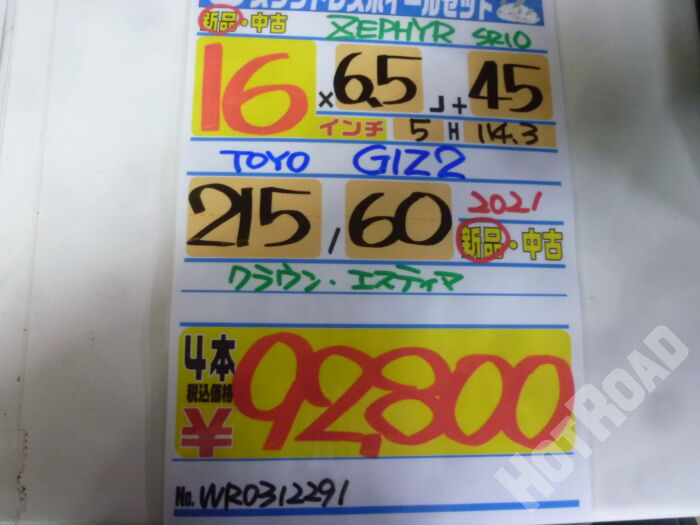 スタッドレスホイールセット
新品・中古 ZEPHYR SR10
16 × 6.5 J + 45
インチ 5 H 114.3
TOYO GIZ2
215 / 60 2021
新品・中古
クラウン・エスティマ
4本
税込価格
¥ 92,800
No. WR0312291
HOTROAD